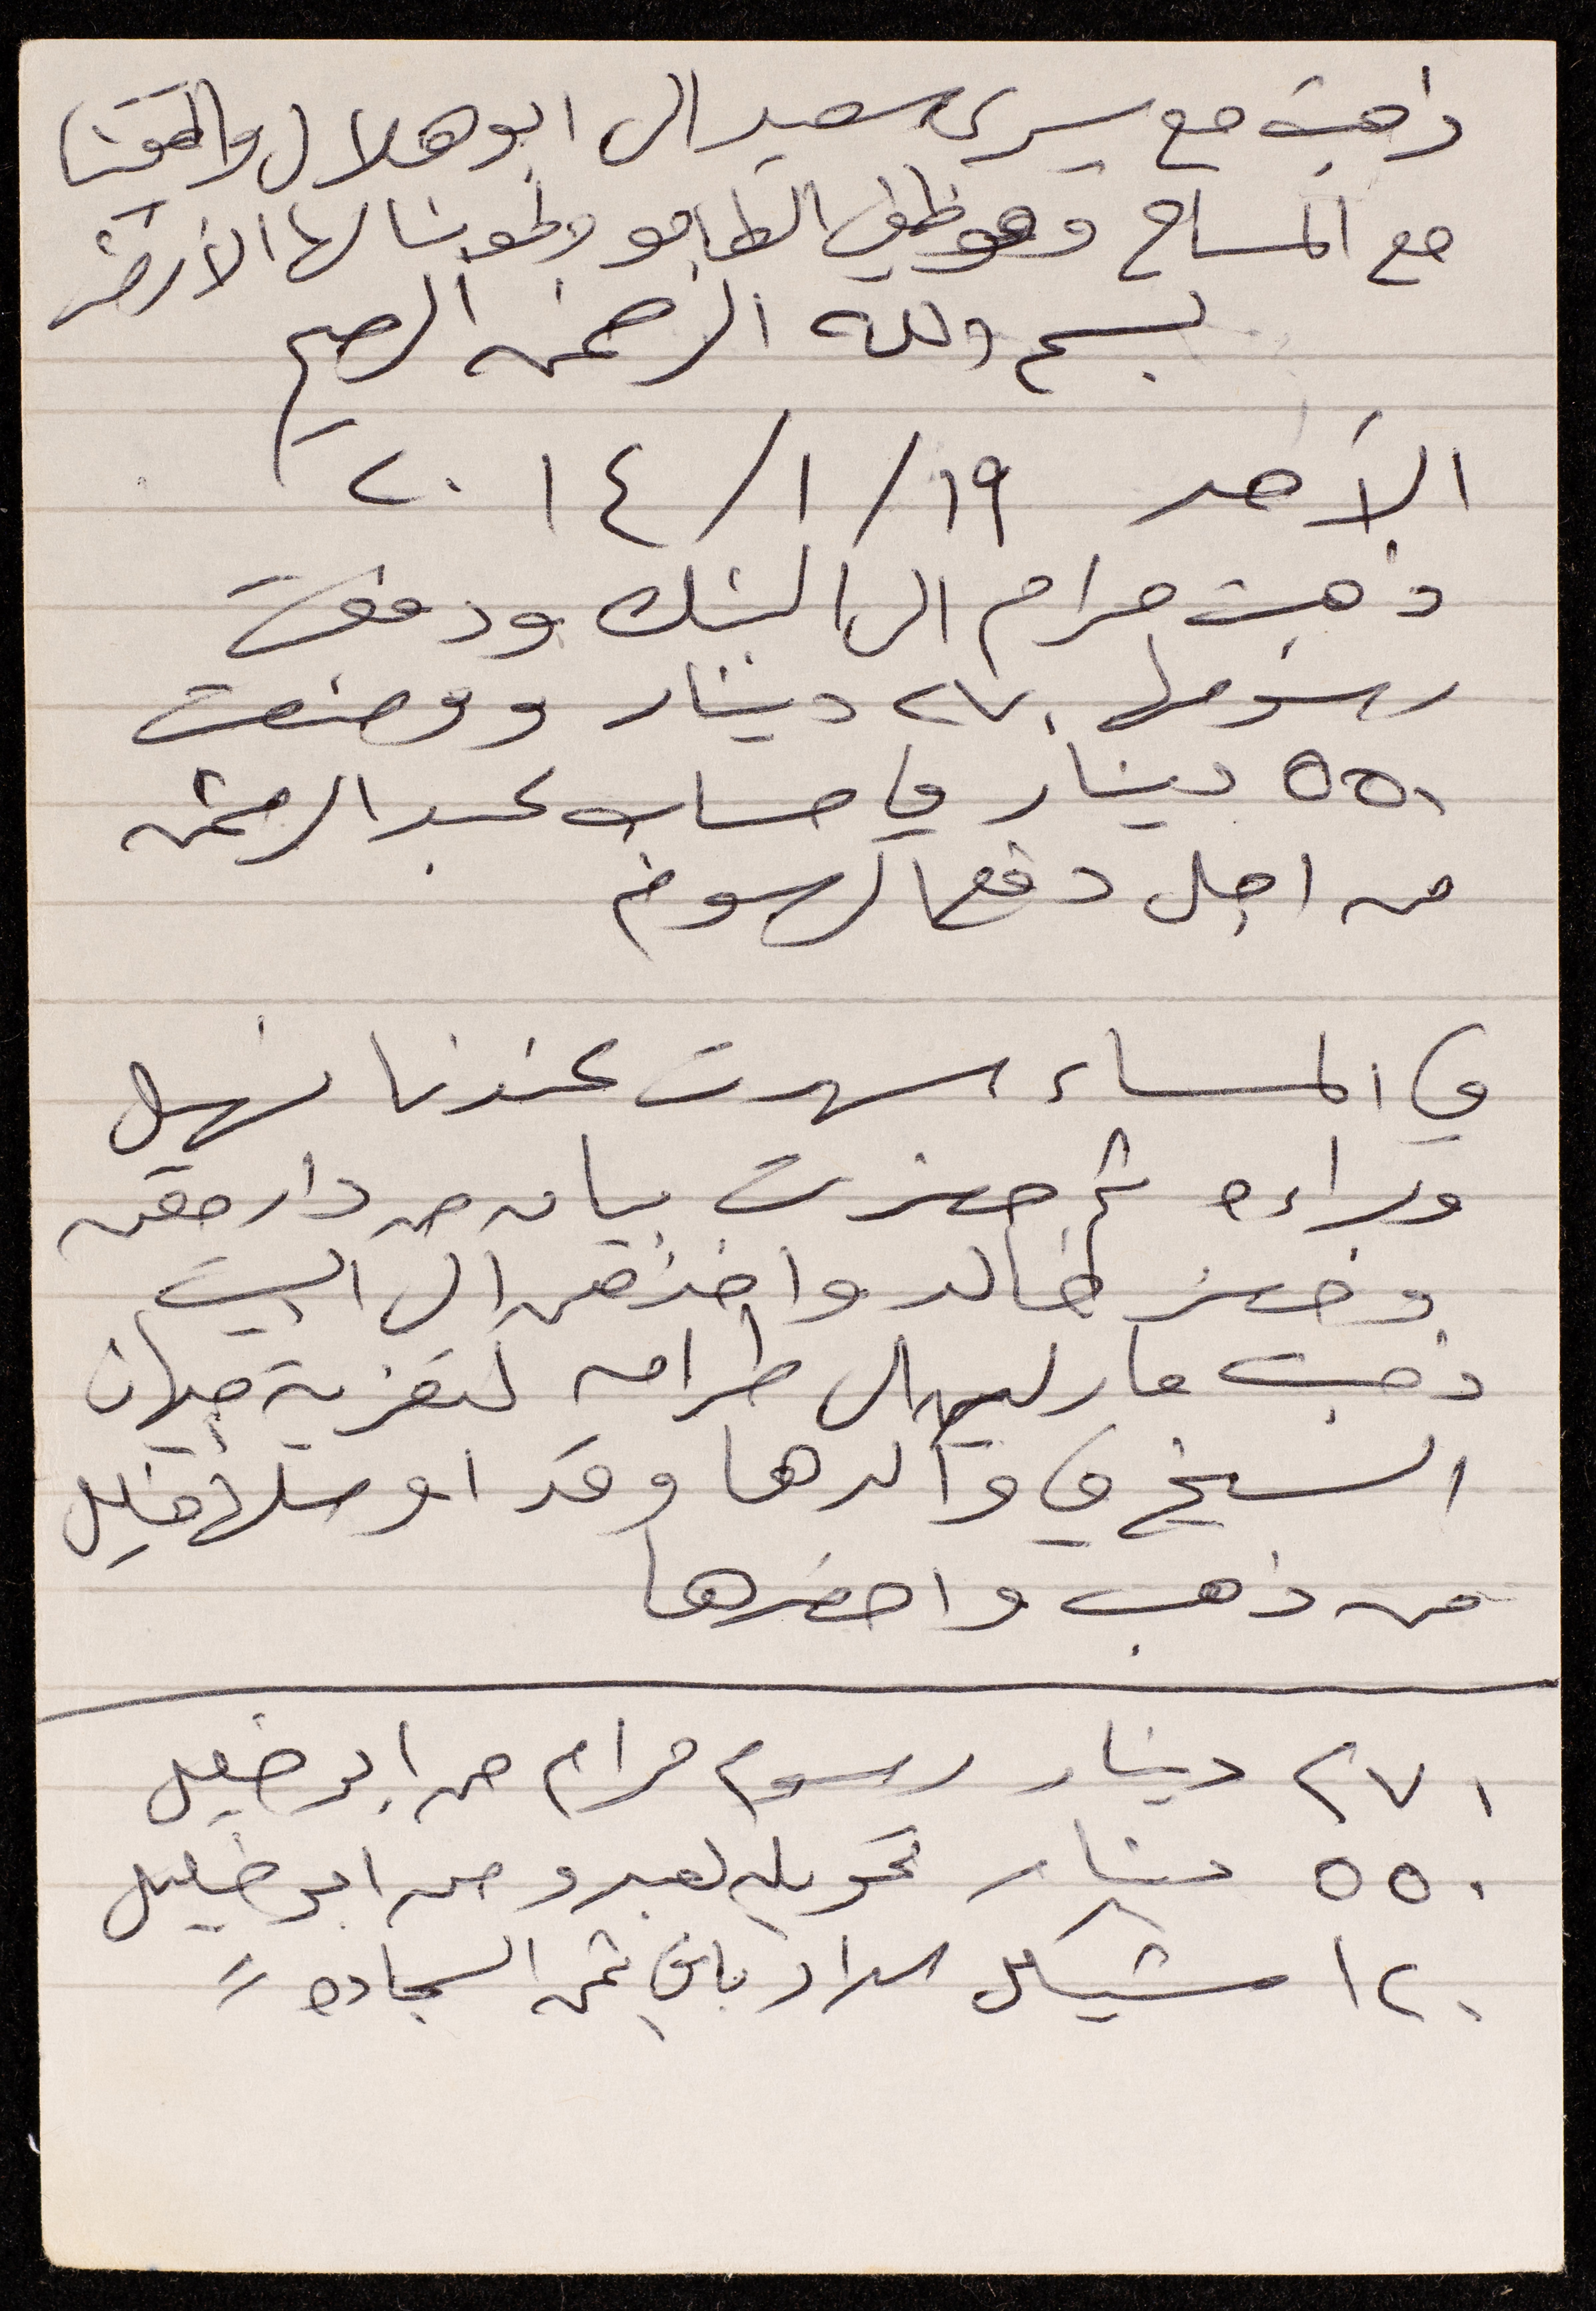 ذهبت مع يسرى سعيد الى ابو هلال والتقينا
مع المساح وموظف الطابو وطوبنا لها الأرض
بسم الله الرحمن الرحيم
الأحد ١٩/ ١/ ٢٠١٤
ذهبت مرام الى البنك ودفعت
رسومها ٢٧٠ دينار ووضعت
٥٥٠ دينار في حساب عبد الرحمن
من اجل دفع الرسوم
في المساء سهرت عندنا نهيل
وبراءه ثم حضرت بيان من دار
وحضر خالد واخذهن الى البيت
ذهبت الى طرامه لتعزية جيهان
الشيخ في والدها وقد اوصلها خليل
من ذهب واحضرها
٢٧٠ دينار رسوم مرام من ابو خليل
٥٥٠ دينار تحويله لعبد و من ابو خليل
١٢٠ شيكل سداد باقي ثمن السجاده //